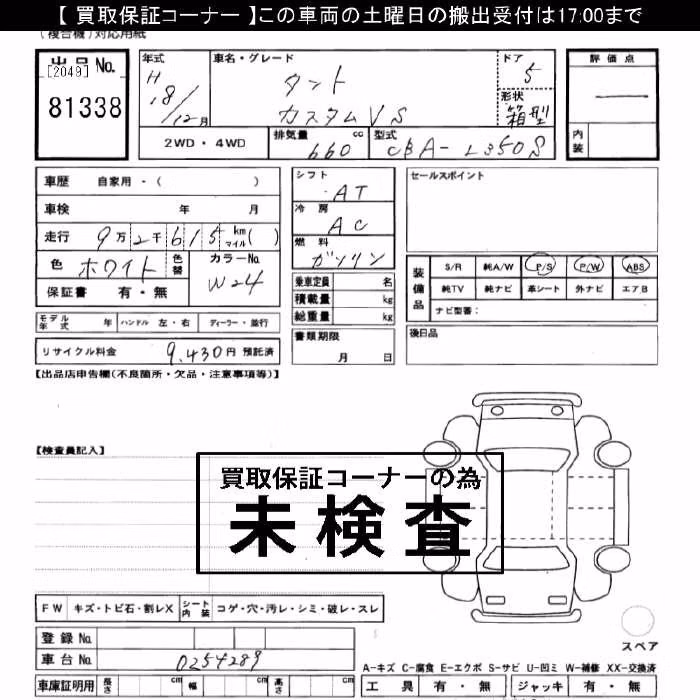 【 買取保証コーナー 】この車両の土曜日の搬出受付は17:00まで
(複合機)対応用紙
出品No.
[2049]
81338
年式
H
18/12月
車名・グレード
タント
カスタムVS
ドア
5
形状
箱型
評価点
内装
2WD・4WD
排気量
660 cc
型式
CBA-L350S
車歴 自家用・( )
車検 年 月
走行 9万2千615 km マイル( )
色 ホワイト 色替 カラーNo. W24
保証書 有・無
シフト
AT
冷房
AC
燃料
ガソリン
乗車定員 名
積載量 kg
総重量 kg
書類期限
月 日
セールスポイント
装備品
S/R 純A/W P/S P/W ABS
純TV 純ナビ 革シート 外ナビ エアB
ナビ型番:
後日品
モデル年式 年 ハンドル 左・右 ディーラー・並行
リサイクル料金 9,430円 預託済
【出品店申告欄(不良箇所・欠品・注意事項等)】
【検査員記入】
買取保証コーナーの為
未検査
FW キズ・トビ石・割レX シート内装 コゲ・穴・汚レ・シミ・破レ・スレ
登録No.
車台No. 0254289
車庫証明用 長さ cm 幅 cm 高さ cm
スペア
A-キズ C-腐食 E-エクボ S-サビ U-凹ミ W-補修 XX-交換済
工具 有・無 ジャッキ 有・無